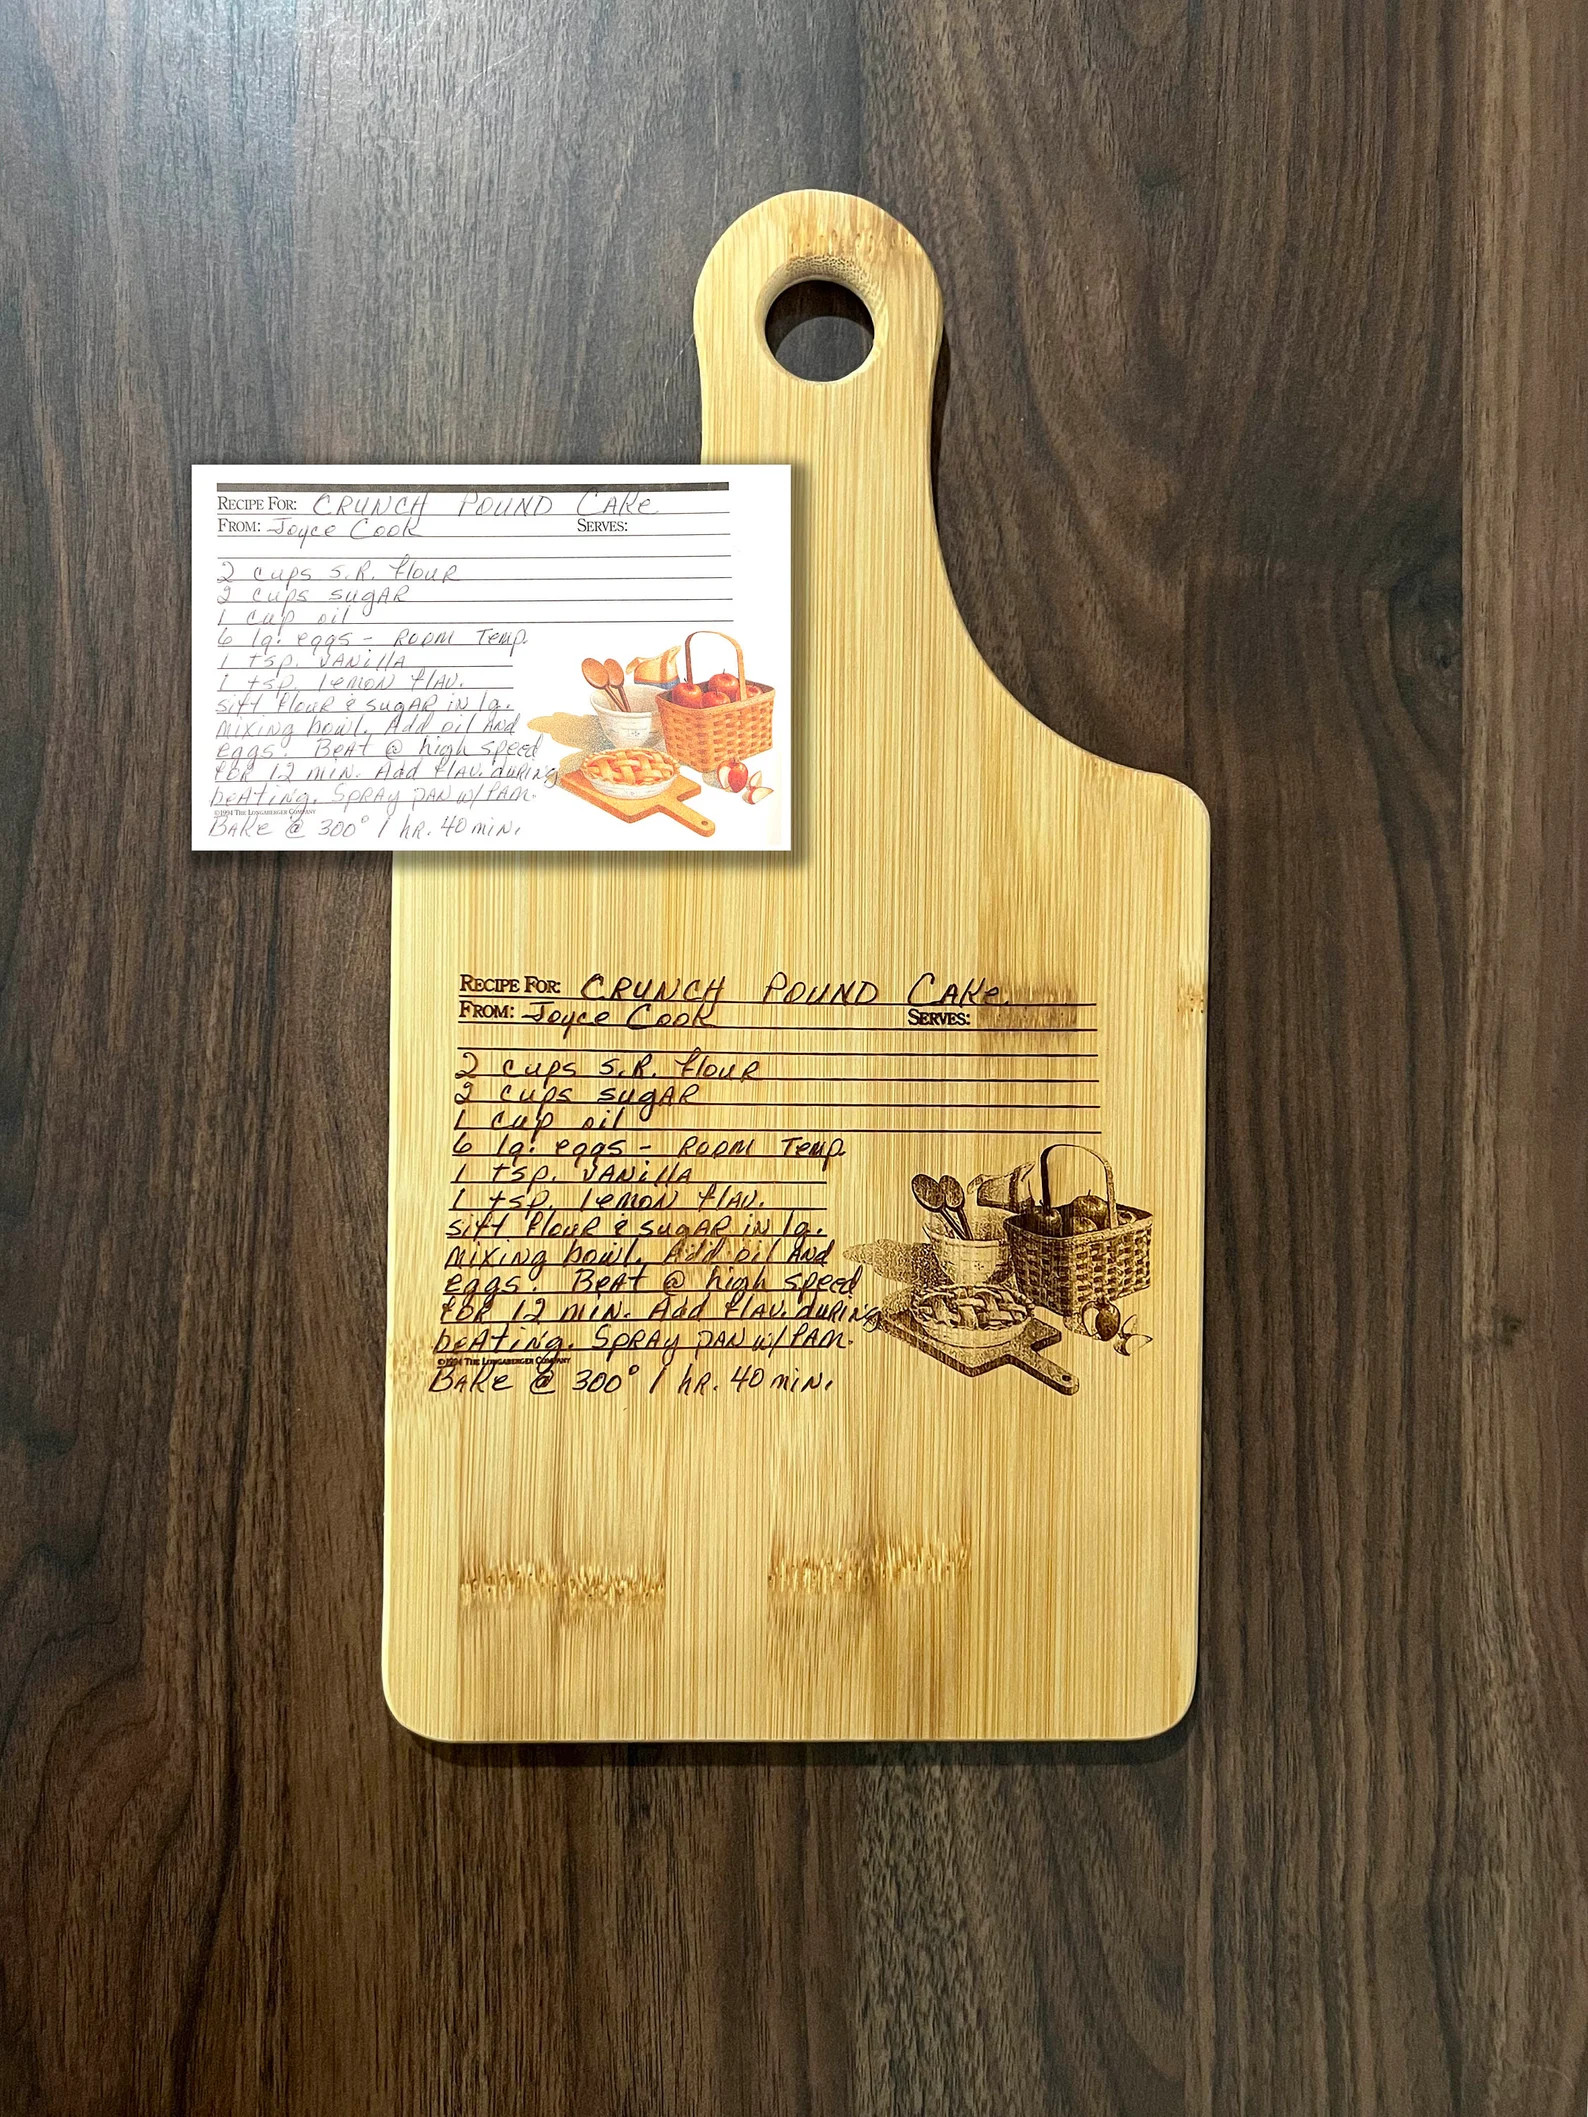 RECIPE FOR: CRUNCH POUND CAKe
FROM: Joyce Cook SERVES:
2 cups S.R. flouR
2 cups sugAR
1 cup oil
6 lg. eggs - ROOM Temp.
1 tsp. VANillA
1 tsp. lemoN flAv.
sift flouR & sugAR iN lg.
mixiNg bowl. Add oil ANd
eggs. BeAt @ high speed
foR 12 miN. Add flAv. duRiNg
beAtiNg. SpRAy pAN w/ PAm.
©1994 THE LONGABERGER COMPANY
BAKe @ 300° 1 hR. 40 miN.
RECIPE FOR: CRUNCH POUND CAKe
FROM: Joyce Cook SERVES:
2 cups S.R. flouR
2 cups sugAR
1 cup oil
6 lg. eggs - ROOM Temp.
1 tsp. VANillA
1 tsp. lemoN flAv.
sift flouR & sugAR iN lg.
mixiNg bowl. Add oil ANd
eggs. BeAt @ high speed
foR 12 miN. Add flAv. duRiNg
beAtiNg. SpRAy pAN w/ PAm.
©1994 THE LONGABERGER COMPANY
BAKe @ 300° 1 hR. 40 miN.